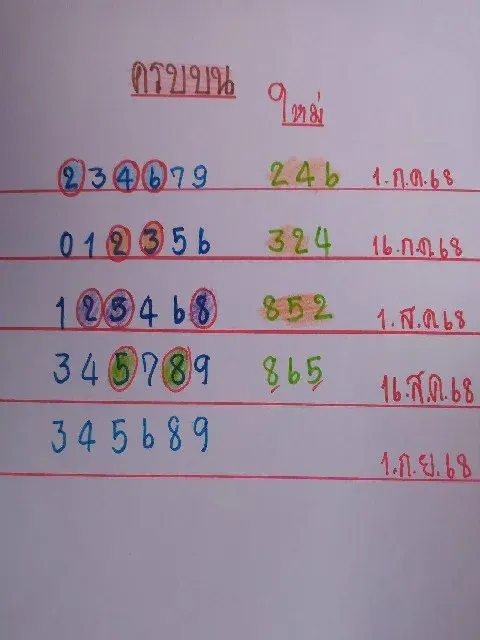 ครบบน
ใหม่
234679 246 1.ก.ค.68
012356 324 16.ก.ค.68
125468 852 1.ส.ค.68
345789 865 16.ส.ค.68
345689 1.ก.ย.68